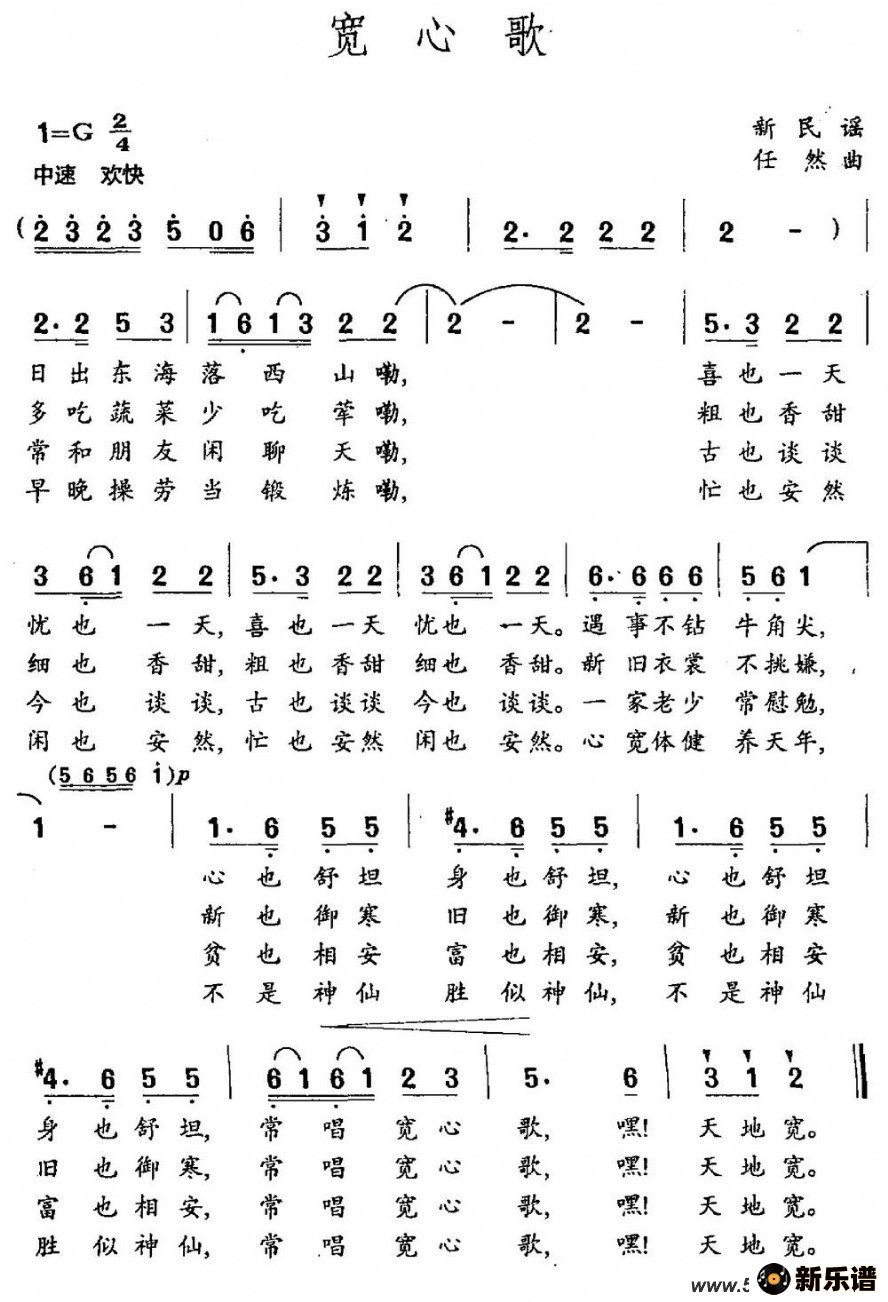 宽心歌
1=G 2/4
新民谣
中速 欢快
任然曲
(2 3 2 3 5 0 6 | 3 1 2 | 2. 2 2 2 2 | 2 - ) |
2. 2 5 3 | 1 6 1 3 2 2 | 2 - | 2 - | 5. 3 2 2
日出东海落西山嘞, 喜也一天
多吃蔬菜少吃荤嘞, 粗也香甜
常和朋友闲聊天嘞, 古也谈谈
早晚操劳当锻炼嘞, 忙也安然
3 6 1 2 2 | 5. 3 2 2 | 3 6 1 2 2 | 6. 6 6 6 | 5 6 1 |
忧也一天, 喜也一天 忧也一天。遇事不钻 牛角尖,
细也香甜, 粗也香甜 细也香甜。新旧衣裳 不挑嫌,
今也谈谈, 古也谈谈 今也谈谈。一家老少 常慰勉,
闲也安然, 忙也安然 闲也安然。心宽体健 养天年,
(5 6 5 6 1) p
1 - | 1. 6 5 5 | #4. 6 5 5 | 1. 6 5 5 |
心也舒坦 身也舒坦, 心也舒坦
新也御寒 旧也御寒, 新也御寒
贫也相安 富也相安, 贫也相安
不是神仙 胜似神仙, 不是神仙
#4. 6 5 5 | 6 1 6 1 2 3 | 5. 6 | 3 1 2 ‖
身也舒坦, 常唱宽心歌, 嘿! 天地宽。
旧也御寒, 常唱宽心歌, 嘿! 天地宽。
富也相安, 常唱宽心歌, 嘿! 天地宽。
胜似神仙, 常唱宽心歌, 嘿! 天地宽。
www.5
新乐谱